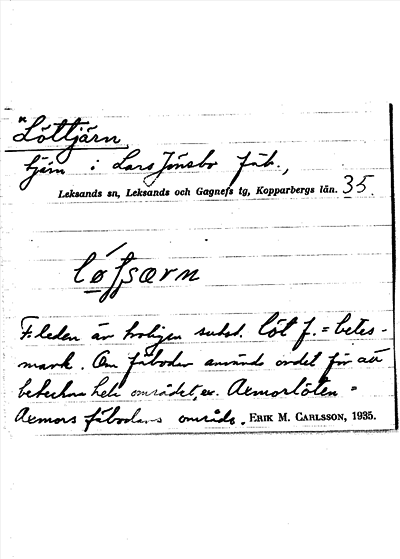 *Löttjärn,
tjärn i Lars Jönsbo fäb.,
Leksands sn, Leksands och Gagnefs tg, Kopparbergs län. 35.
F.leden är troligen subst. löt f. = betes-
mark. Om fäbodar används ordet för att
beteckna hela området, ex. Axmorlöten =
Axmors fäbodars område. ERIK M. CARLSSON, 1935.